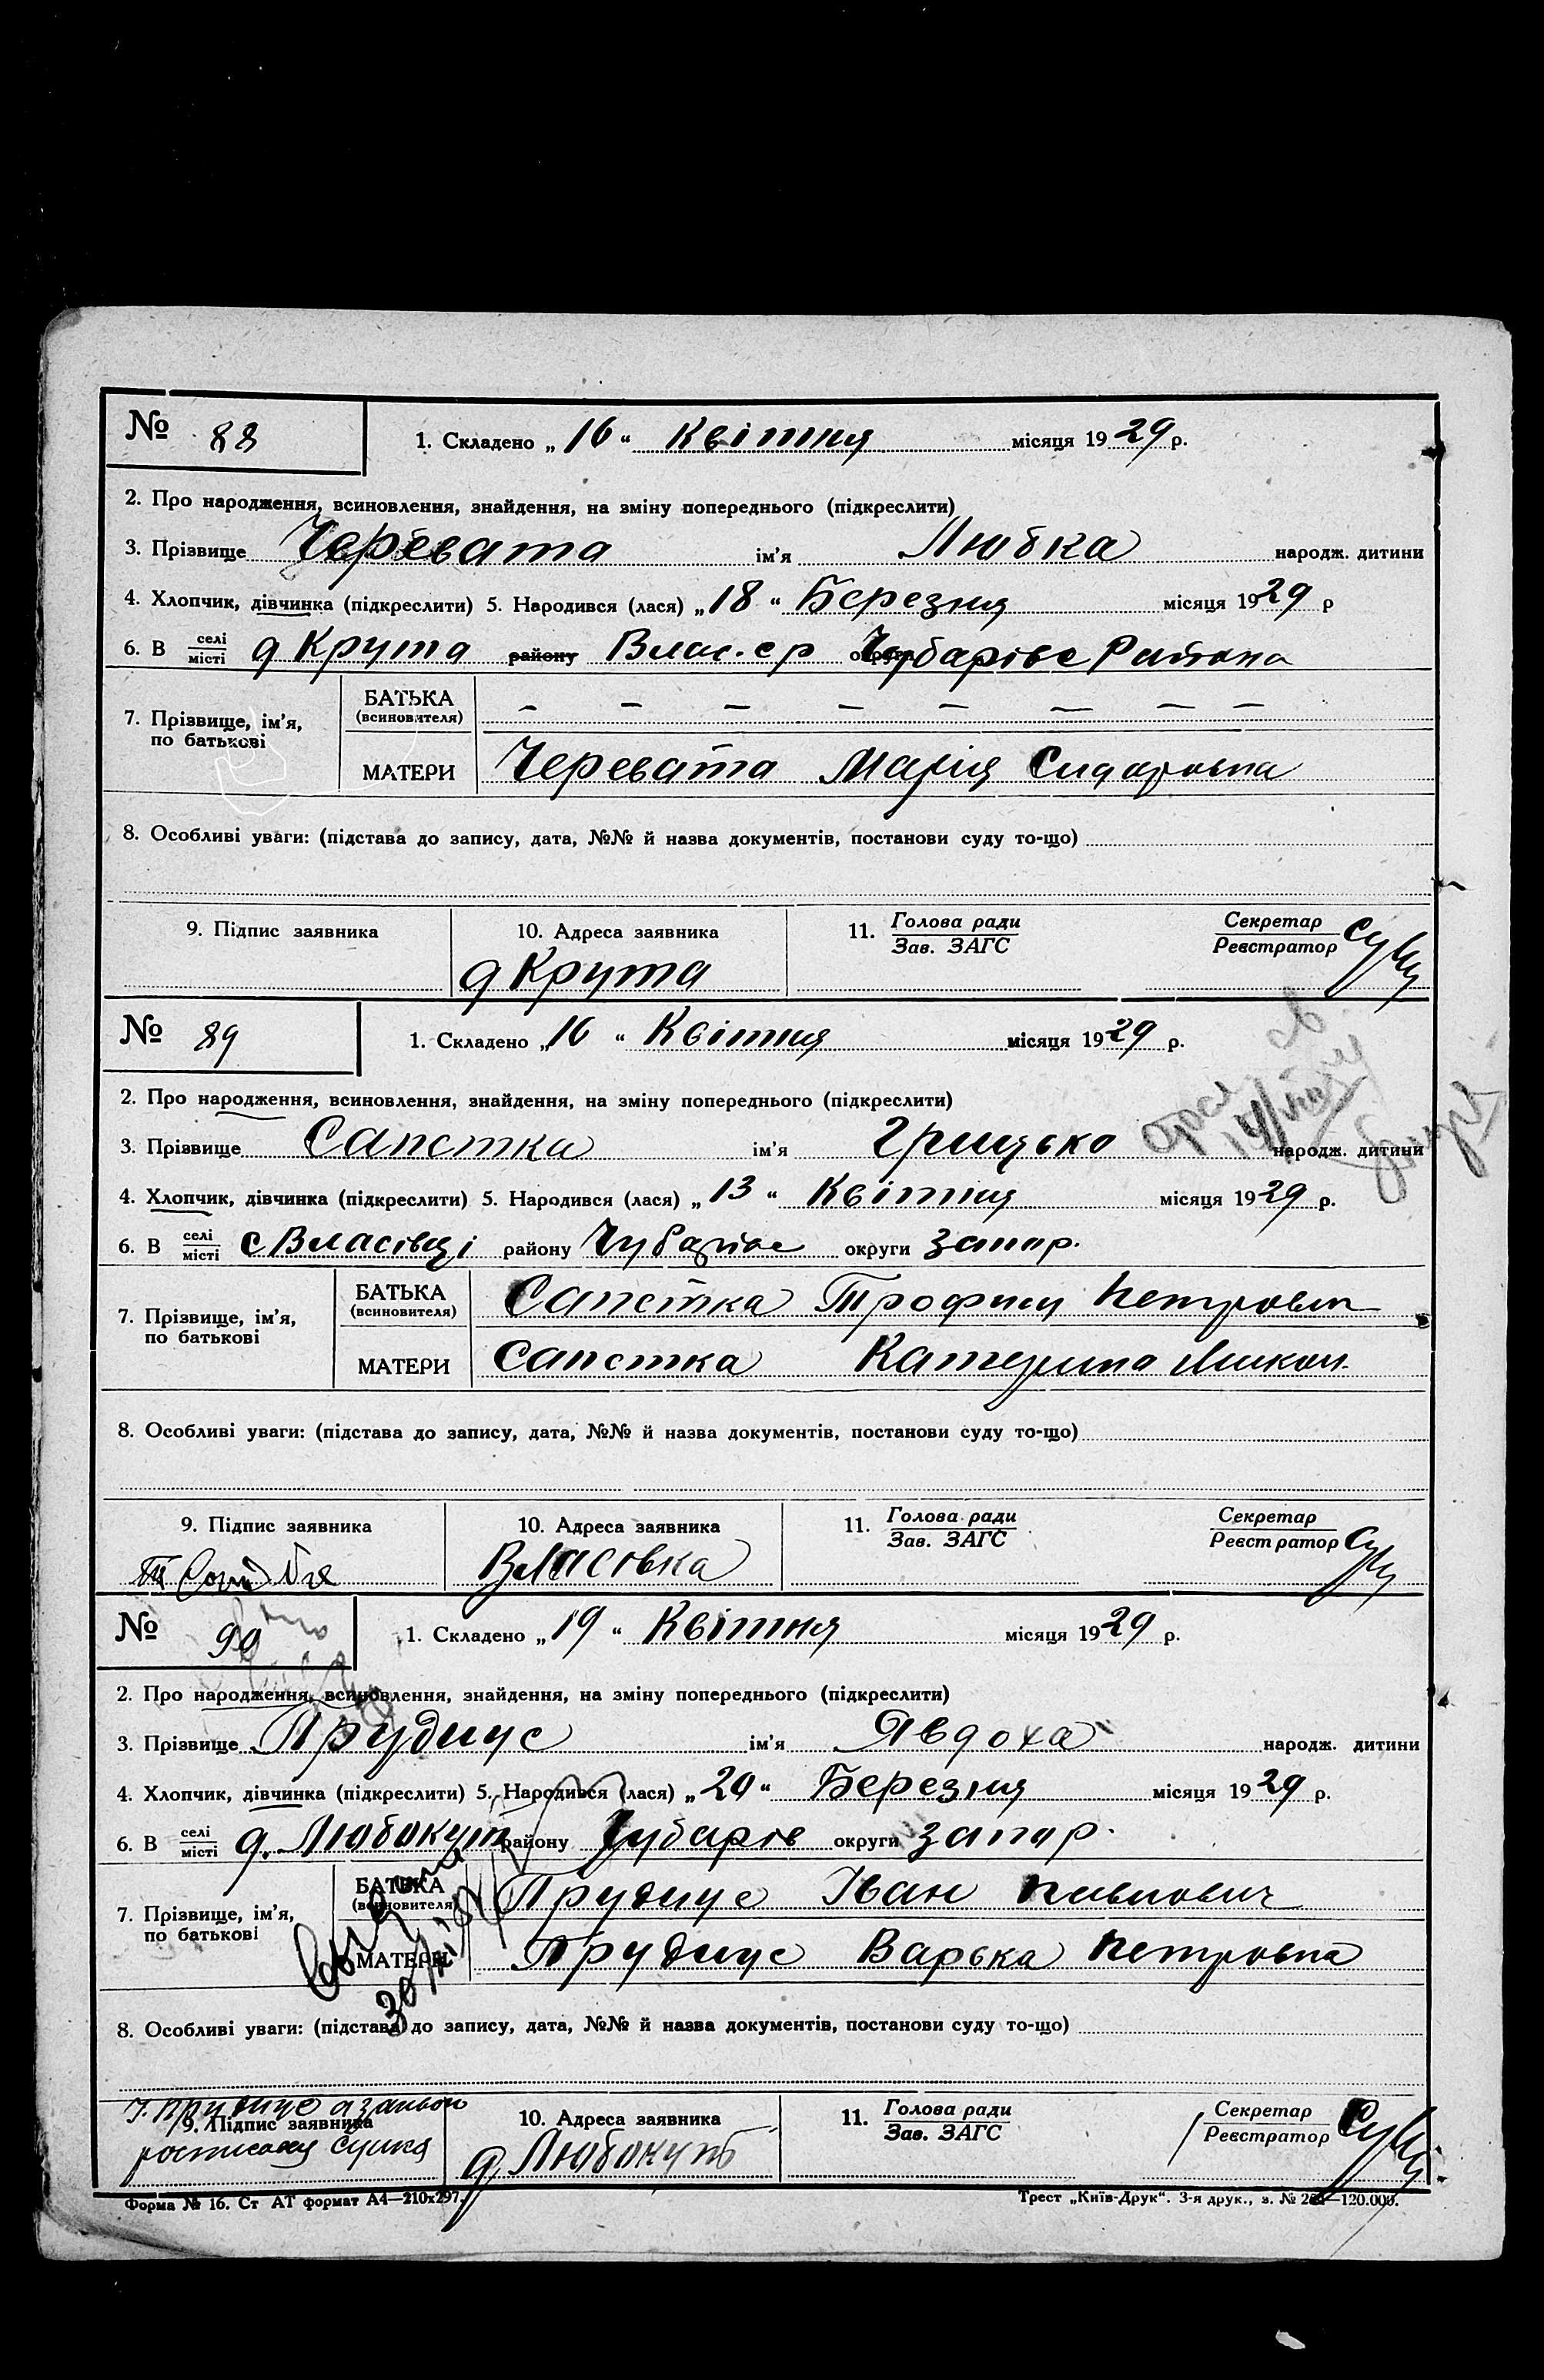 № 88 1. Складено „16“ Квітня місяця 1929 р.
2. Про народження, всиновлення, знайдення, на зміну попереднього (підкреслити)
3. Прізвище Черевата ім’я Любка народж. дитини
4. Хлопчик, дівчинка (підкреслити) 5. Народився (лася) „18“ Березня місяця 1929 р
6. В селі/місті д Крута району Влас. с р округи Чубарівс Района
7. Прізвище, ім’я, по батькові БАТЬКА (всиновителя) — — — — — — — —
МАТЕРИ Черевата Марія Сидоровна
8. Особливі уваги: (підстава до запису, дата, №№ й назва документів, постанови суду то-що)
9. Підпис заявника 10. Адреса заявника 11. Голова ради/Зав. ЗАГС Секретар/Реєстратор
д Крута
№ 89 1. Складено „16“ Квітня місяця 1929 р.
2. Про народження, всиновлення, знайдення, на зміну попереднього (підкреслити)
3. Прізвище Сапстка ім’я Грицько народж. дитини
4. Хлопчик, дівчинка (підкреслити) 5. Народився (лася) „13“ Квітня місяця 1929 р.
6. В селі/місті с Власівці району Чубарівс округи запор.
7. Прізвище, ім’я, по батькові БАТЬКА (всиновителя) Сапстка Трофим Петрович
МАТЕРИ Сапстка Катерина Микол.
8. Особливі уваги: (підстава до запису, дата, №№ й назва документів, постанови суду то-що)
9. Підпис заявника 10. Адреса заявника 11. Голова ради/Зав. ЗАГС Секретар/Реєстратор
Власовка
№ 90 1. Складено „19“ Квітня місяця 1929 р.
2. Про народження, всиновлення, знайдення, на зміну попереднього (підкреслити)
3. Прізвище Прудиус ім’я Явдоха народж. дитини
4. Хлопчик, дівчинка (підкреслити) 5. Народився (лася) „20“ Березня місяця 1929 р.
6. В селі/місті д. Любокут району Чубарів округи запор.
7. Прізвище, ім’я, по батькові БАТЬКА (всиновителя) Прудиус Іван Павлович
МАТЕРИ Прудиус Варька Петровна
8. Особливі уваги: (підстава до запису, дата, №№ й назва документів, постанови суду то-що)
І. Прудиус
9. Підпис заявника 10. Адреса заявника 11. Голова ради/Зав. ЗАГС Секретар/Реєстратор
д Любокут
Форма № 16. Ст АТ формат А4—210х297. Трест „Київ-Друк“. 3-я друк., з. № —120.000.